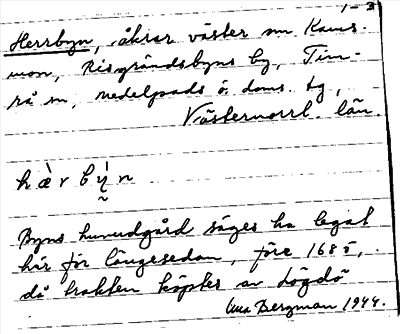 1-3
Herrbyn, åkrar väster om Kaus-
mon, Risgrändsbyns by, Tim-
rå sn, Medelpads ö. doms. tg,
Västernorrl. län.
h æ̀ r b ỳ n
Byns huvudgård säges ha legat
här för längesedan, före 1685,
då trakten köptes av Lögdö
Bergman 1944.